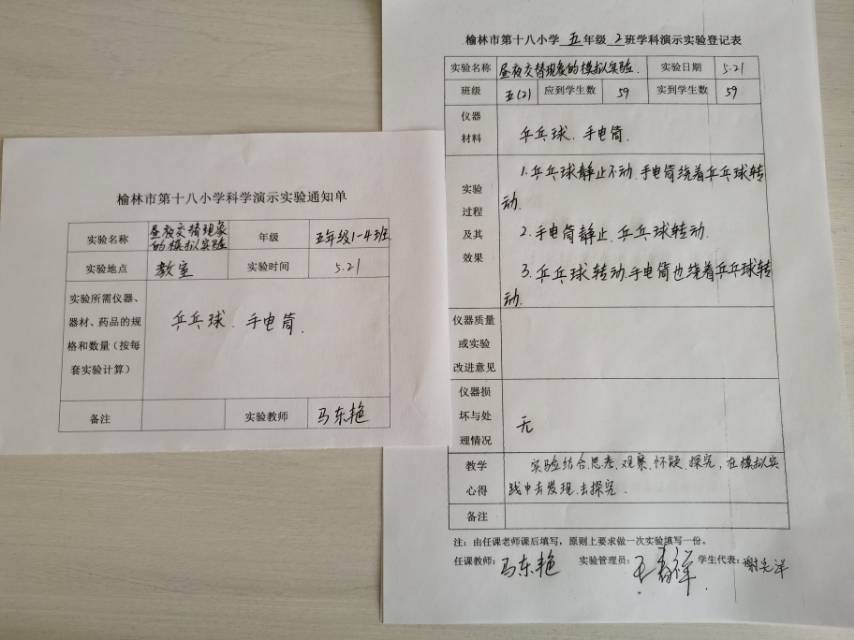 榆林市第十八小学科学演示实验通知单
实验名称 昼夜交替现象的模拟实验 年级 五年级1-4班
实验地点 教室 实验时间 5.21
实验所需仪器、器材、药品的规格和数量（按每套实验计算） 乒乓球、手电筒.
备注 实验教师 马东艳
榆林市第十八小学 五 年级 2 班学科演示实验登记表
实验名称 昼夜交替现象的模拟实验. 实验日期 5.21
班级 五(2) 应到学生数 59 实到学生数 59
仪器材料 乒乓球、手电筒.
实验过程及其效果
1.乒乓球静止不动.手电筒绕着乒乓球转
动.
2.手电筒静止.乒乓球转动.
3.乒乓球转动.手电筒也绕着乒乓球转
动.
仪器质量或实验改进意见
仪器损坏与处理情况 无
教学心得
实验结合.思考、观察、怀疑、探究，在模拟实
践中去发现.去探究.
备注
注：由任课老师课后填写，原则上要求做一次实验填写一份。
任课教师：马东艳 实验管理员： 学生代表：